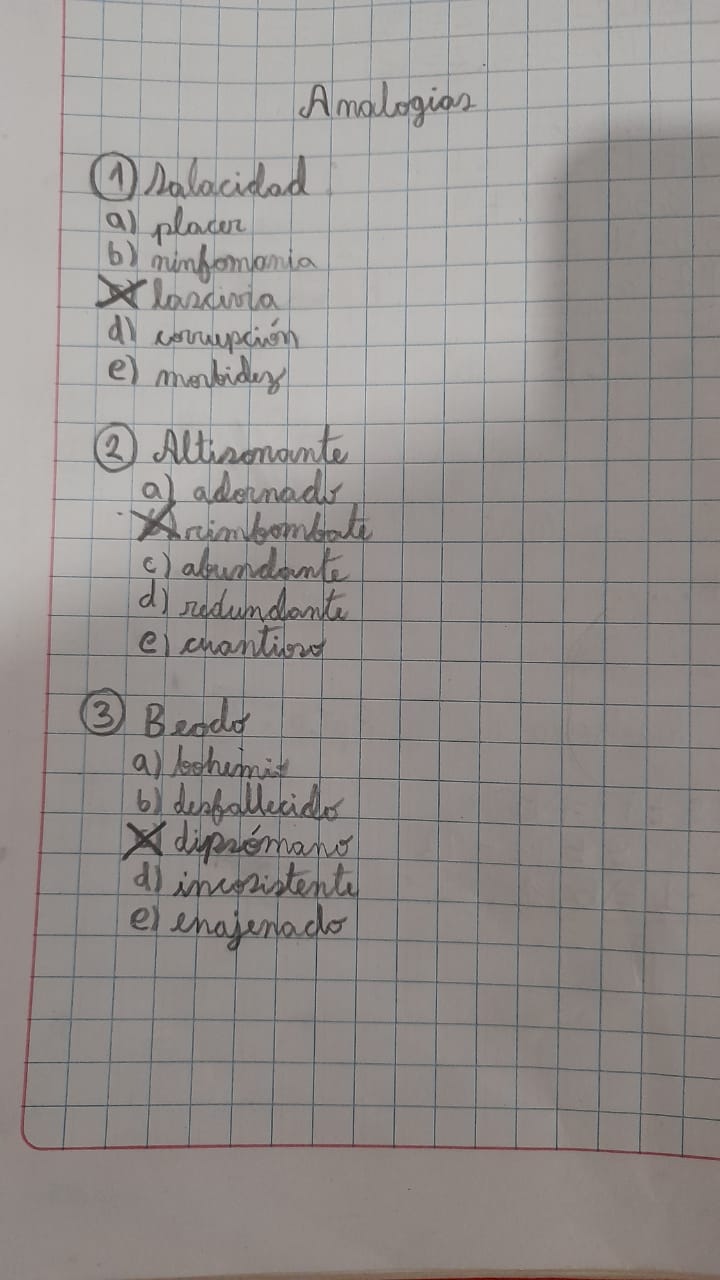 Analogias
① Salacidad
a) placer
b) ninfomania
c) lascivia
d) corrupción
e) morbidez
② Altisonante
a) adornado
b) rimbombate
c) abundante
d) redundante
e) cuantioso
③ Beodo
a) bohemio
b) desfallecido
c) dipsómano
d) incosistente
e) enajenado